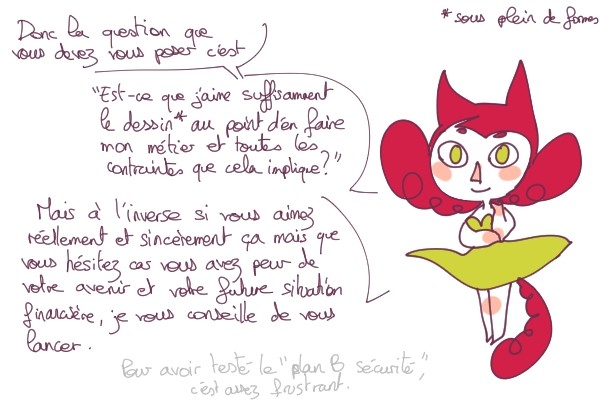 Donc la question que
vous devez vous poser c'est
*sous plein de formes
"Est-ce que j'aime suffisamment
le dessin* au point d'en faire
mon métier et toutes les
contraintes que cela implique?"
Mais à l'inverse si vous aimez
réellement et sincèrement ça mais que
vous hésitez cas vous avez peur de
votre avenir et votre future situation
financière, je vous conseille de vous
lancer.
Pour avoir testé le "plan B sécurité",
c'est assez frustrant.